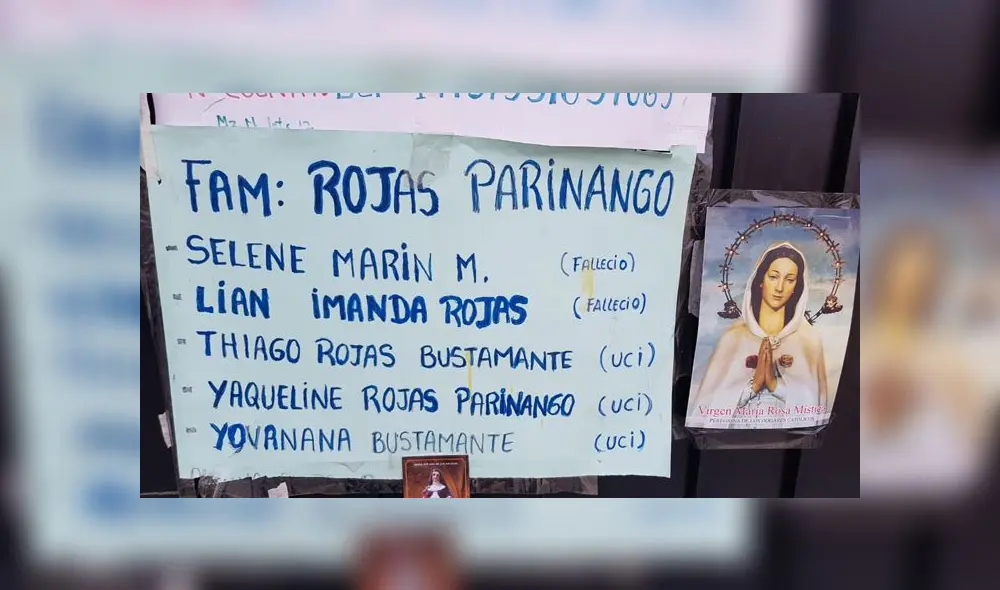 Mz. N lote 12
FAM: ROJAS PARINANGO
- SELENE MARIN M. (FALLECIO)
- LIAN IMANDA ROJAS (FALLECIO)
- THIAGO ROJAS BUSTAMANTE (UCI)
- YAQUELINE ROJAS PARINANGO (UCI)
- YOVANANA BUSTAMANTE (UCI)
Virgen María Rosa Mística
PEREGRINA DE LOS HOGARES CATOLICOS